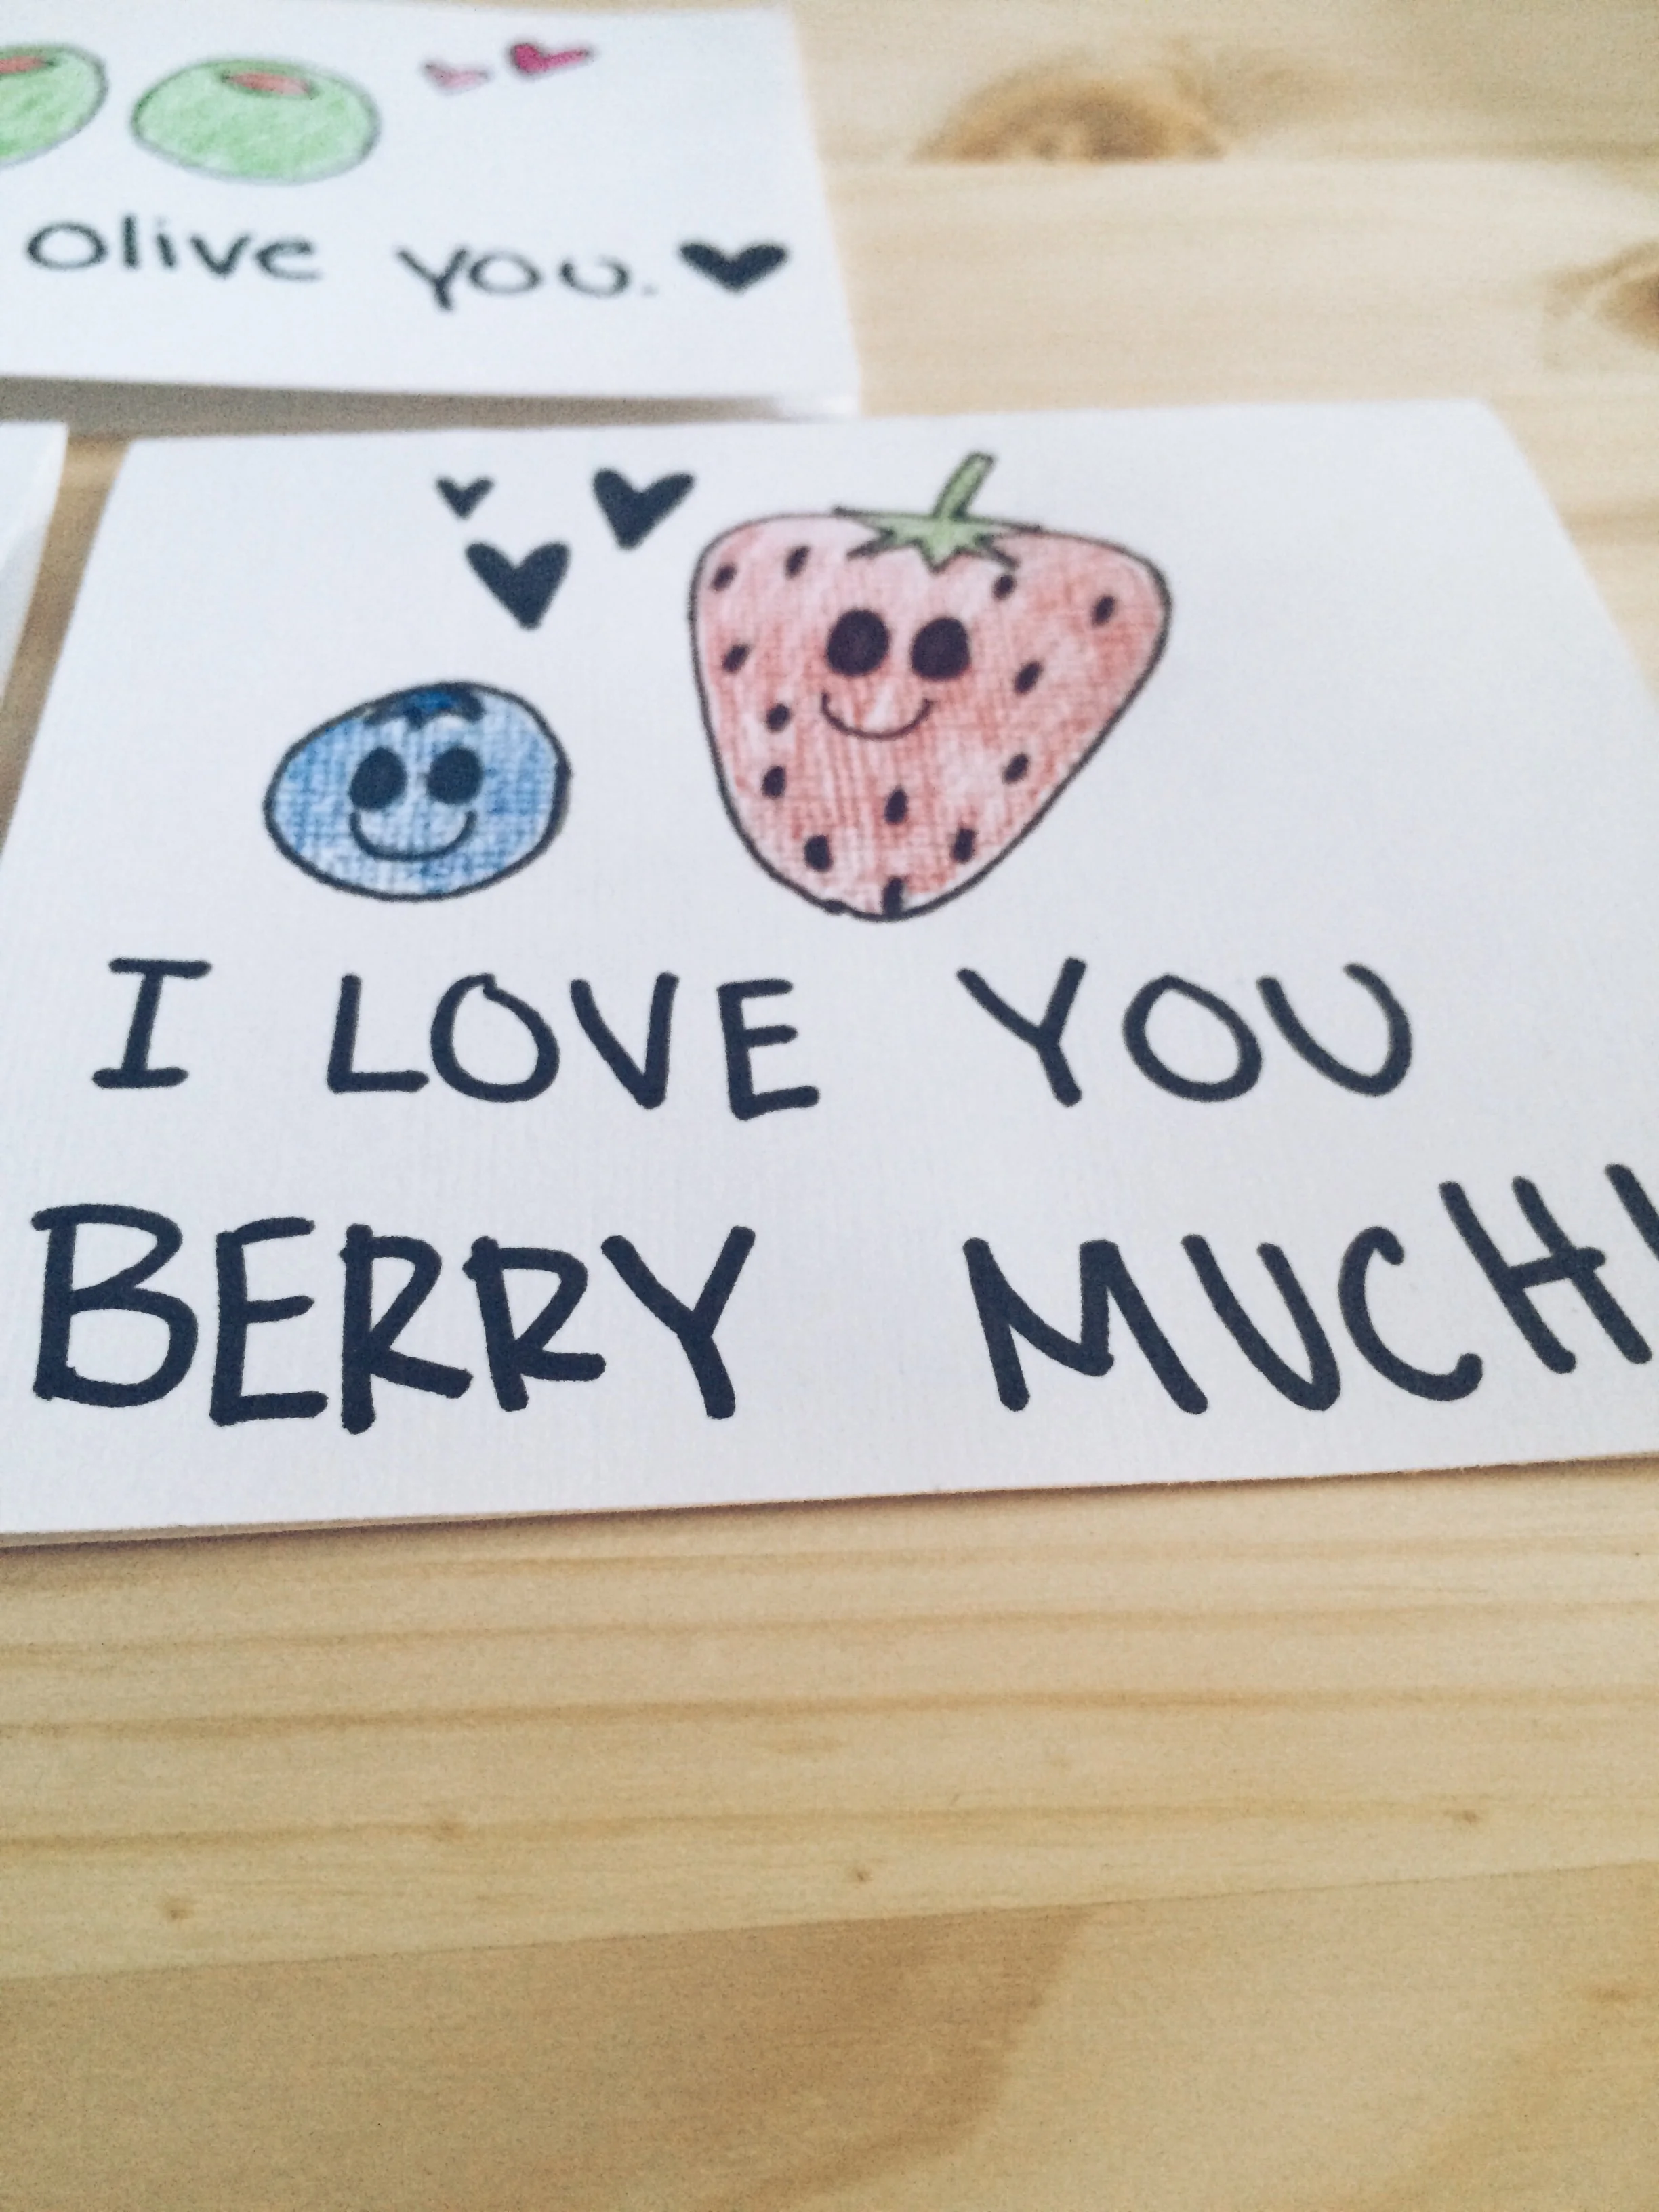 olive you.
I LOVE YOU
BERRY MUCH!